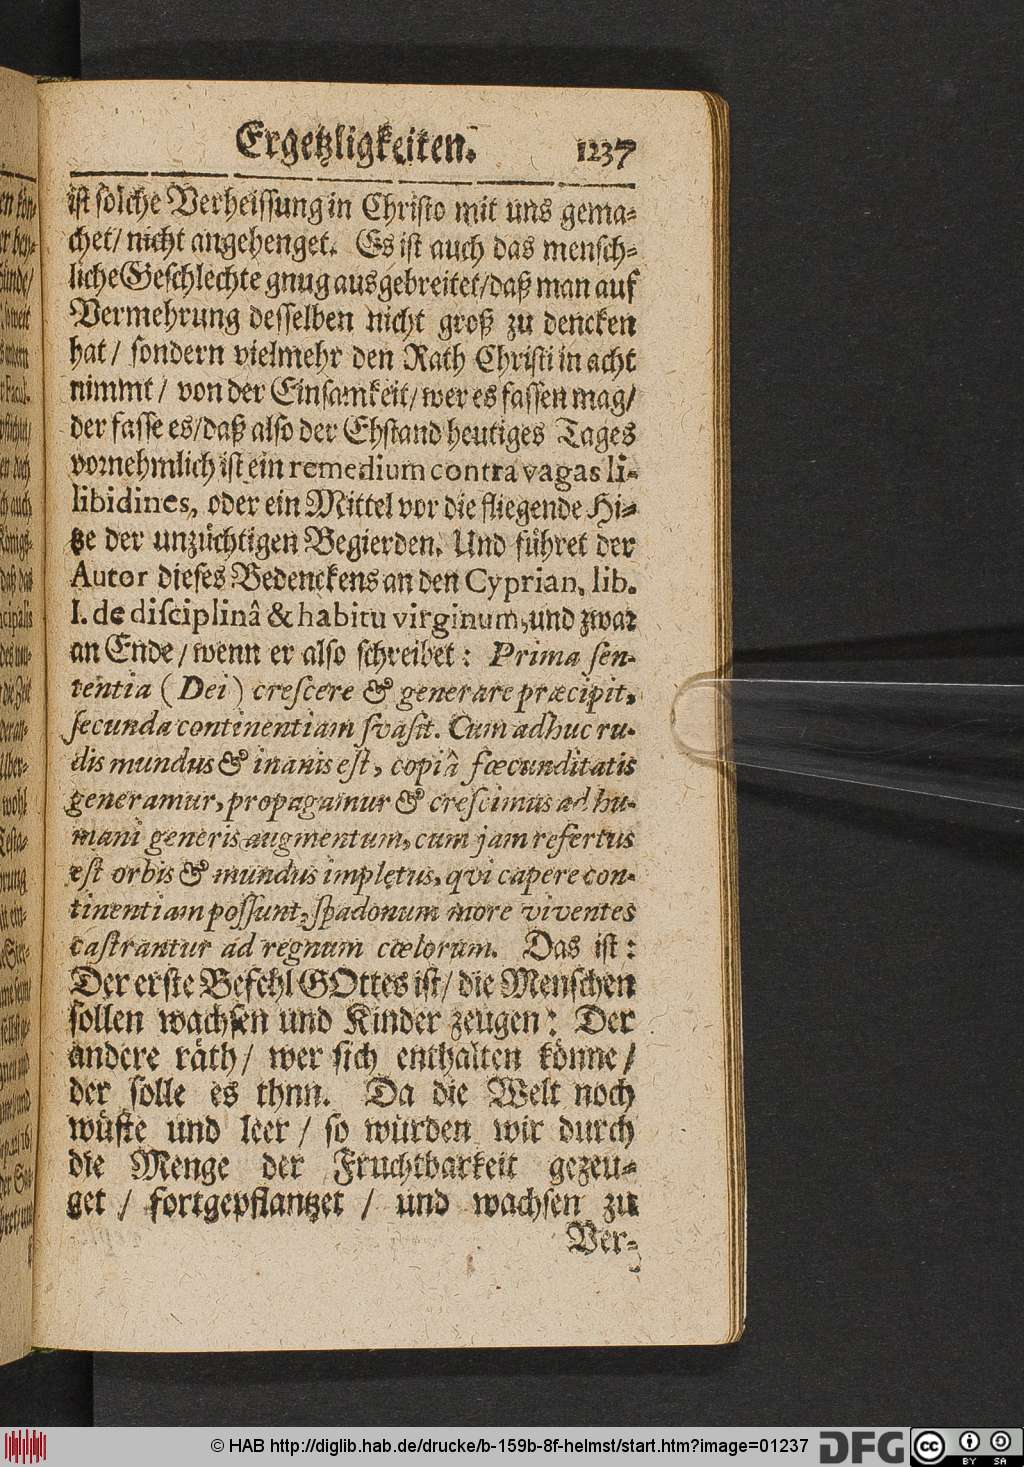 Ergetzligkeiten. 1237
ist solche Verheissung in Christo mit uns gema-
chet/ nicht angehenget. Es ist auch das mensch-
liche Geschlechte gnug ausgebreitet/daß man auf
Vermehrung desselben nicht groß zu dencken
hat/ sondern vielmehr den Rath Christi in acht
nimmt/ von der Einsamkeit/wer es fassen mag/
der fasse es/daß also der Ehstand heutiges Tages
vornehmlich ist ein remedium contra vagas li-
libidines, oder ein Mittel vor die fliegende Hi-
tze der unzüchtigen Begierden. Und führet der
Autor dieses Bedenckens an den Cyprian. lib.
I. de disciplinâ & habitu virginum, und zwar
an Ende/wenn er also schreibet: Prima sen-
tentia (Dei) crescere & generare præcipit,
secunda continentiam svasit. Cum adhuc ru-
dis mundus & inanis est, copiâ fœcunditatis
generamur, propagamur & crescimus ad hu-
mani generis augmentum, cum jam refertus
est orbis & mundus impletus, qvi capere con-
tinentiam possunt, spadonum more viventes
castrantur ad regnum cœlorum. Das ist:
Der erste Befehl GOttes ist/ die Menschen
sollen wachsen und Kinder zeugen: Der
andere räth/ wer sich enthalten könne/
der solle es thnn. Da die Welt noch
wüste und leer/ so wurden wir durch
die Menge der Fruchtbarkeit gezeu-
get/ fortgepflantzet/ und wachsen zu
Ver-
© HAB http://diglib.hab.de/drucke/b-159b-8f-helmst/start.htm?image=01237 DFG cc BY SA